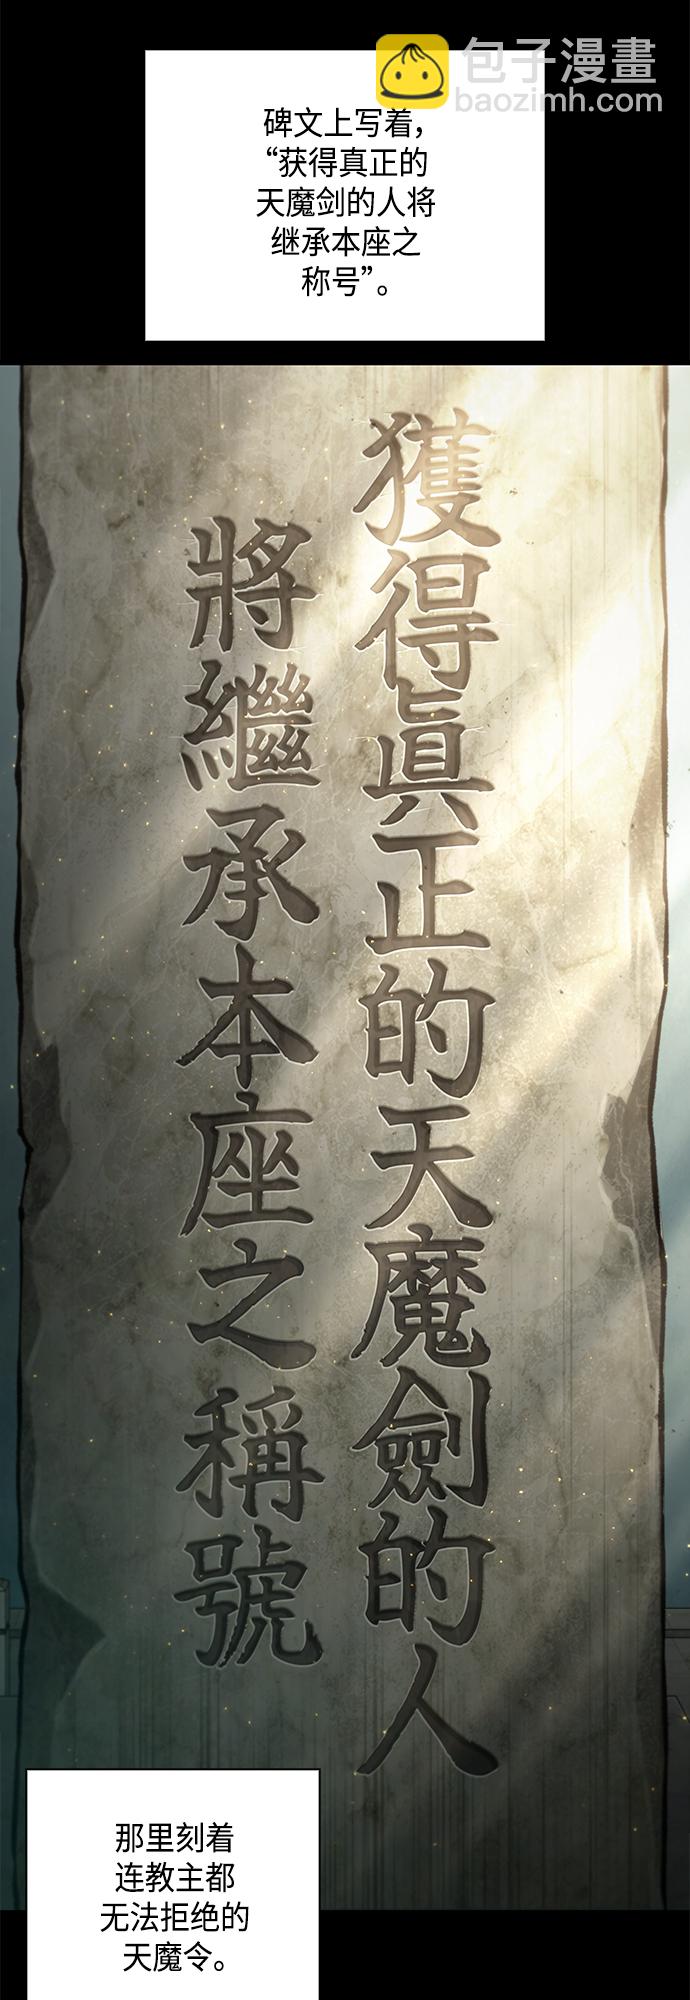 包子漫畫
baozimh.com
碑文上写着，
“获得真正的
天魔剑的人将
继承本座之
称号”。
獲得眞正的天魔劍的人
將繼承本座之稱號
那里刻着
连教主都
无法拒绝的
天魔令。